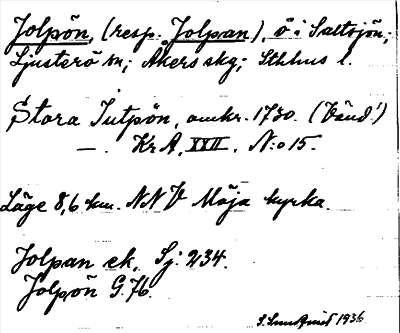 Jolpön, (resp. Jolpan), ö i Saltsjön;
Ljusterö sn; Åkers skg; Sthlms l.
Stora Jutpön, omkr. 1730. (Vänd!)
— . Kr A, XXII, N:o 15.
Läge 8,6 km. NNV Möja kyrka.
Jolpan ek. Sj: 234.
Jolpön G. 76.
S. Sundquist 1936